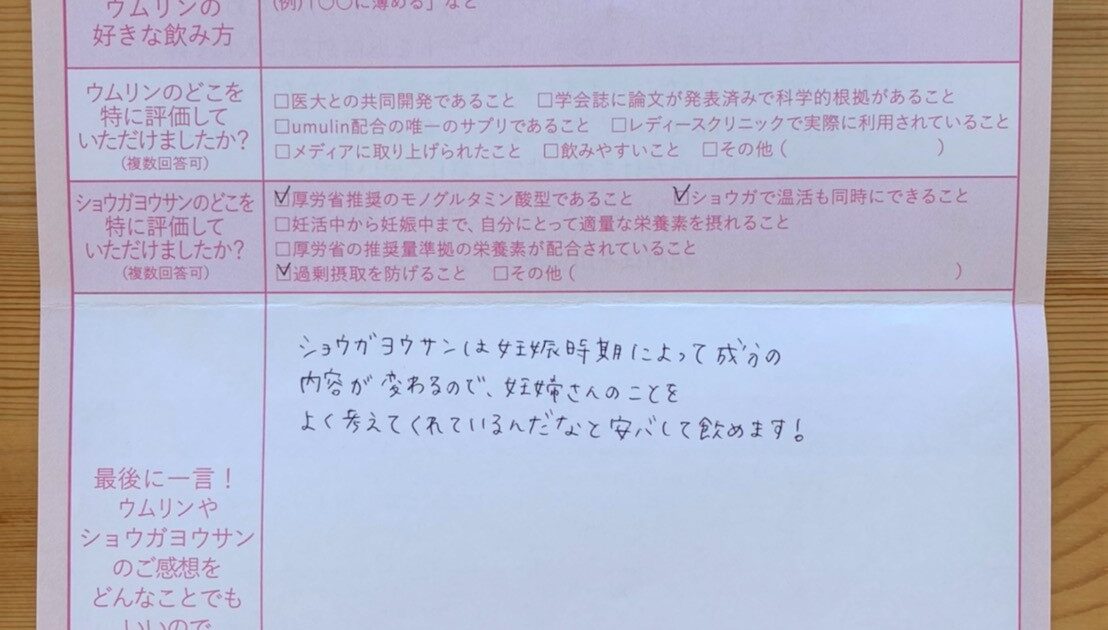 ウムリンの
好きな飲み方
(例)「〇〇に薄める」など
ウムリンのどこを
特に評価して
いただけましたか?
(複数回答可)
□医大との共同開発であること □学会誌に論文が発表済みで科学的根拠があること
□umulin配合の唯一のサプリであること □レディースクリニックで実際に利用されていること
□メディアに取り上げられたこと □飲みやすいこと □その他 ( )
ショウガヨウサンのどこを
特に評価して
いただけましたか?
(複数回答可)
☑厚労省推奨のモノグルタミン酸型であること ☑ショウガで温活も同時にできること
□妊活中から妊娠中まで、自分にとって適量な栄養素を摂れること
□厚労省の推奨量準拠の栄養素が配合されていること
☑過剰摂取を防げること □その他 ( )
最後に一言!
ウムリンや
ショウガヨウサン
のご感想を
どんなことでも
いいので
ショウガヨウサンは妊娠時期によって成分の
内容が変わるので、妊婦さんのことを
よく考えてくれているんだなと安心して飲めます!